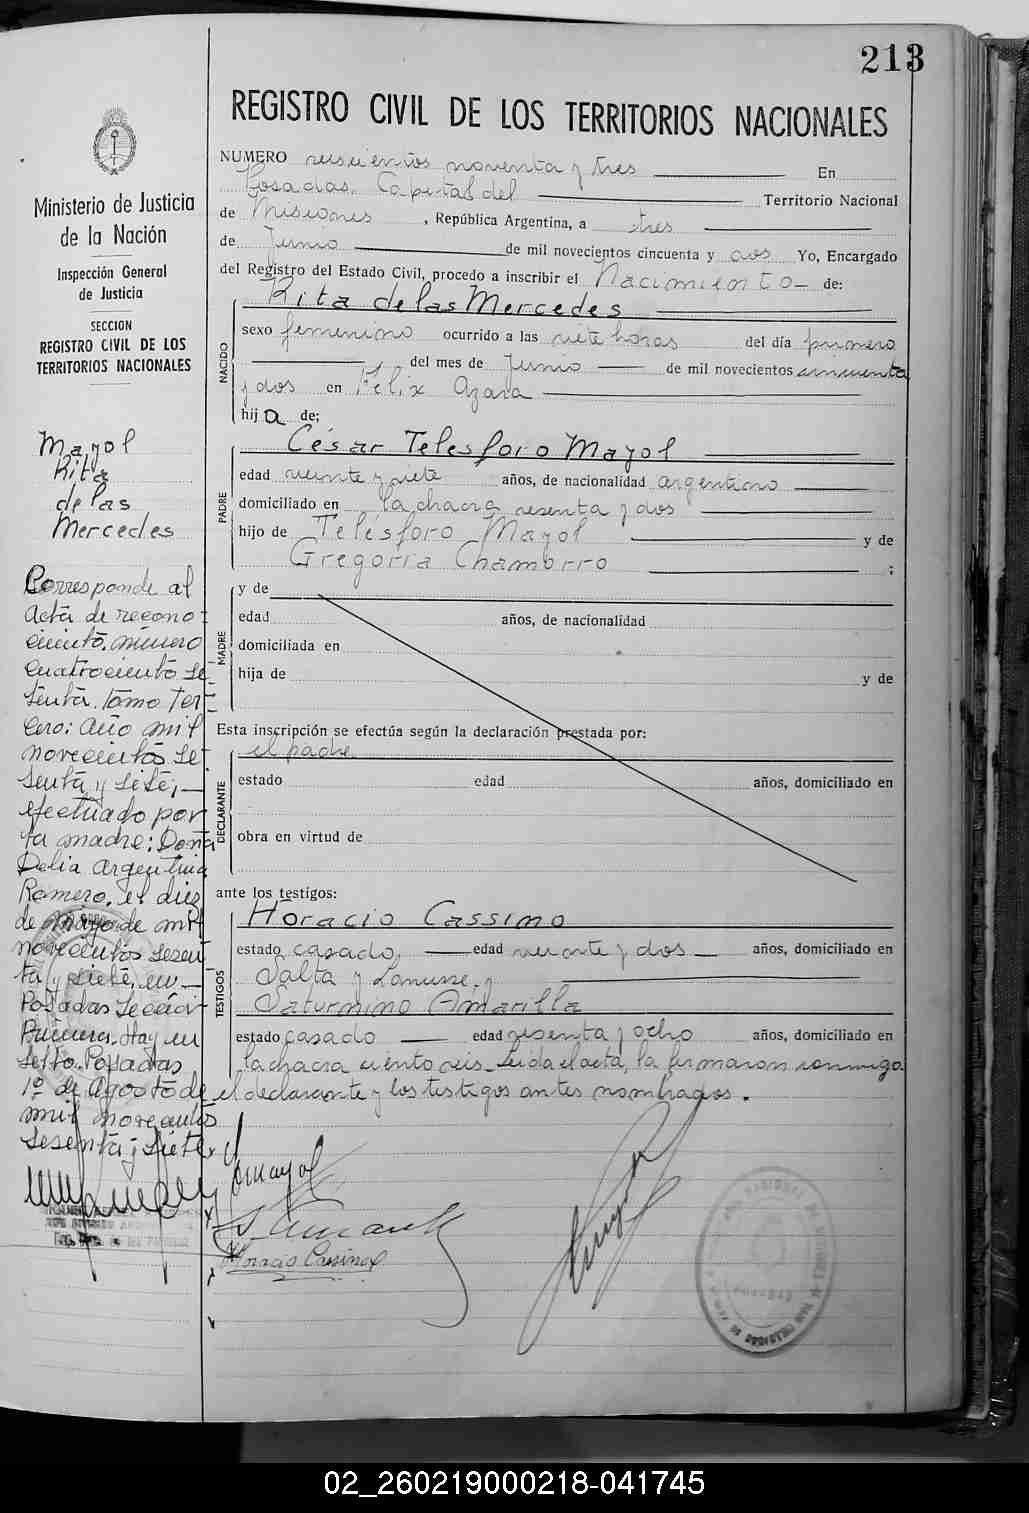 213
REGISTRO CIVIL DE LOS TERRITORIOS NACIONALES
NUMERO seiscientos noventa y tres En
Posadas, Capital del Territorio Nacional
de Misiones, República Argentina, a tres
de Junio de mil novecientos cincuenta y dos Yo, Encargado
del Registro del Estado Civil, procedo a inscribir el Nacimiento de:
NACIDO
Rita de las Mercedes
sexo femenino ocurrido a las siete horas del día primero
del mes de Junio de mil novecientos cincuenta
y dos en Félix Azara
hija de;
PADRE
César Telesforo Mayol
edad veinte y siete años, de nacionalidad argentino
domiciliado en la chacra sesenta y dos
hijo de Telésforo Mayol y de
Gregoria Chamorro ;
MADRE
y de
edad años, de nacionalidad
domiciliada en
hija de y de
Esta inscripción se efectúa según la declaración prestada por:
DECLARANTE
el padre
estado edad años, domiciliado en
obra en virtud de
ante los testigos:
TESTIGOS
Horacio Cassino
estado casado, edad veinte y dos años, domiciliado en
Salta y Lanusse, y
Saturnino Amarilla
estado casado edad sesenta y ocho años, domiciliado en
la chacra ciento seis. Leída el acta, la firmaron conmigo
el declarante y los testigos antes nombrados.
Mayol
S. Amarilla
Horacio Cassino
Ministerio de Justicia
de la Nación
Inspección General
de Justicia
SECCION
REGISTRO CIVIL DE LOS
TERRITORIOS NACIONALES
Mayol
Rita
de las
Mercedes
Corresponde al
acta de recono-
cimiento. número
cuatrociento se-
senta. tomo ter-
cero: año mil
novecientos se-
senta y siete;
efectuado por
la madre: Doña
Delia Argentina
Romero, el diez
de mayo de mil
novecientos sesen
ta y siete, en
Posadas Sección
Primera. Hay un
sello. Posadas
1º de Agosto de
mil novecientos
sesenta y siete.
02_260219000218-041745